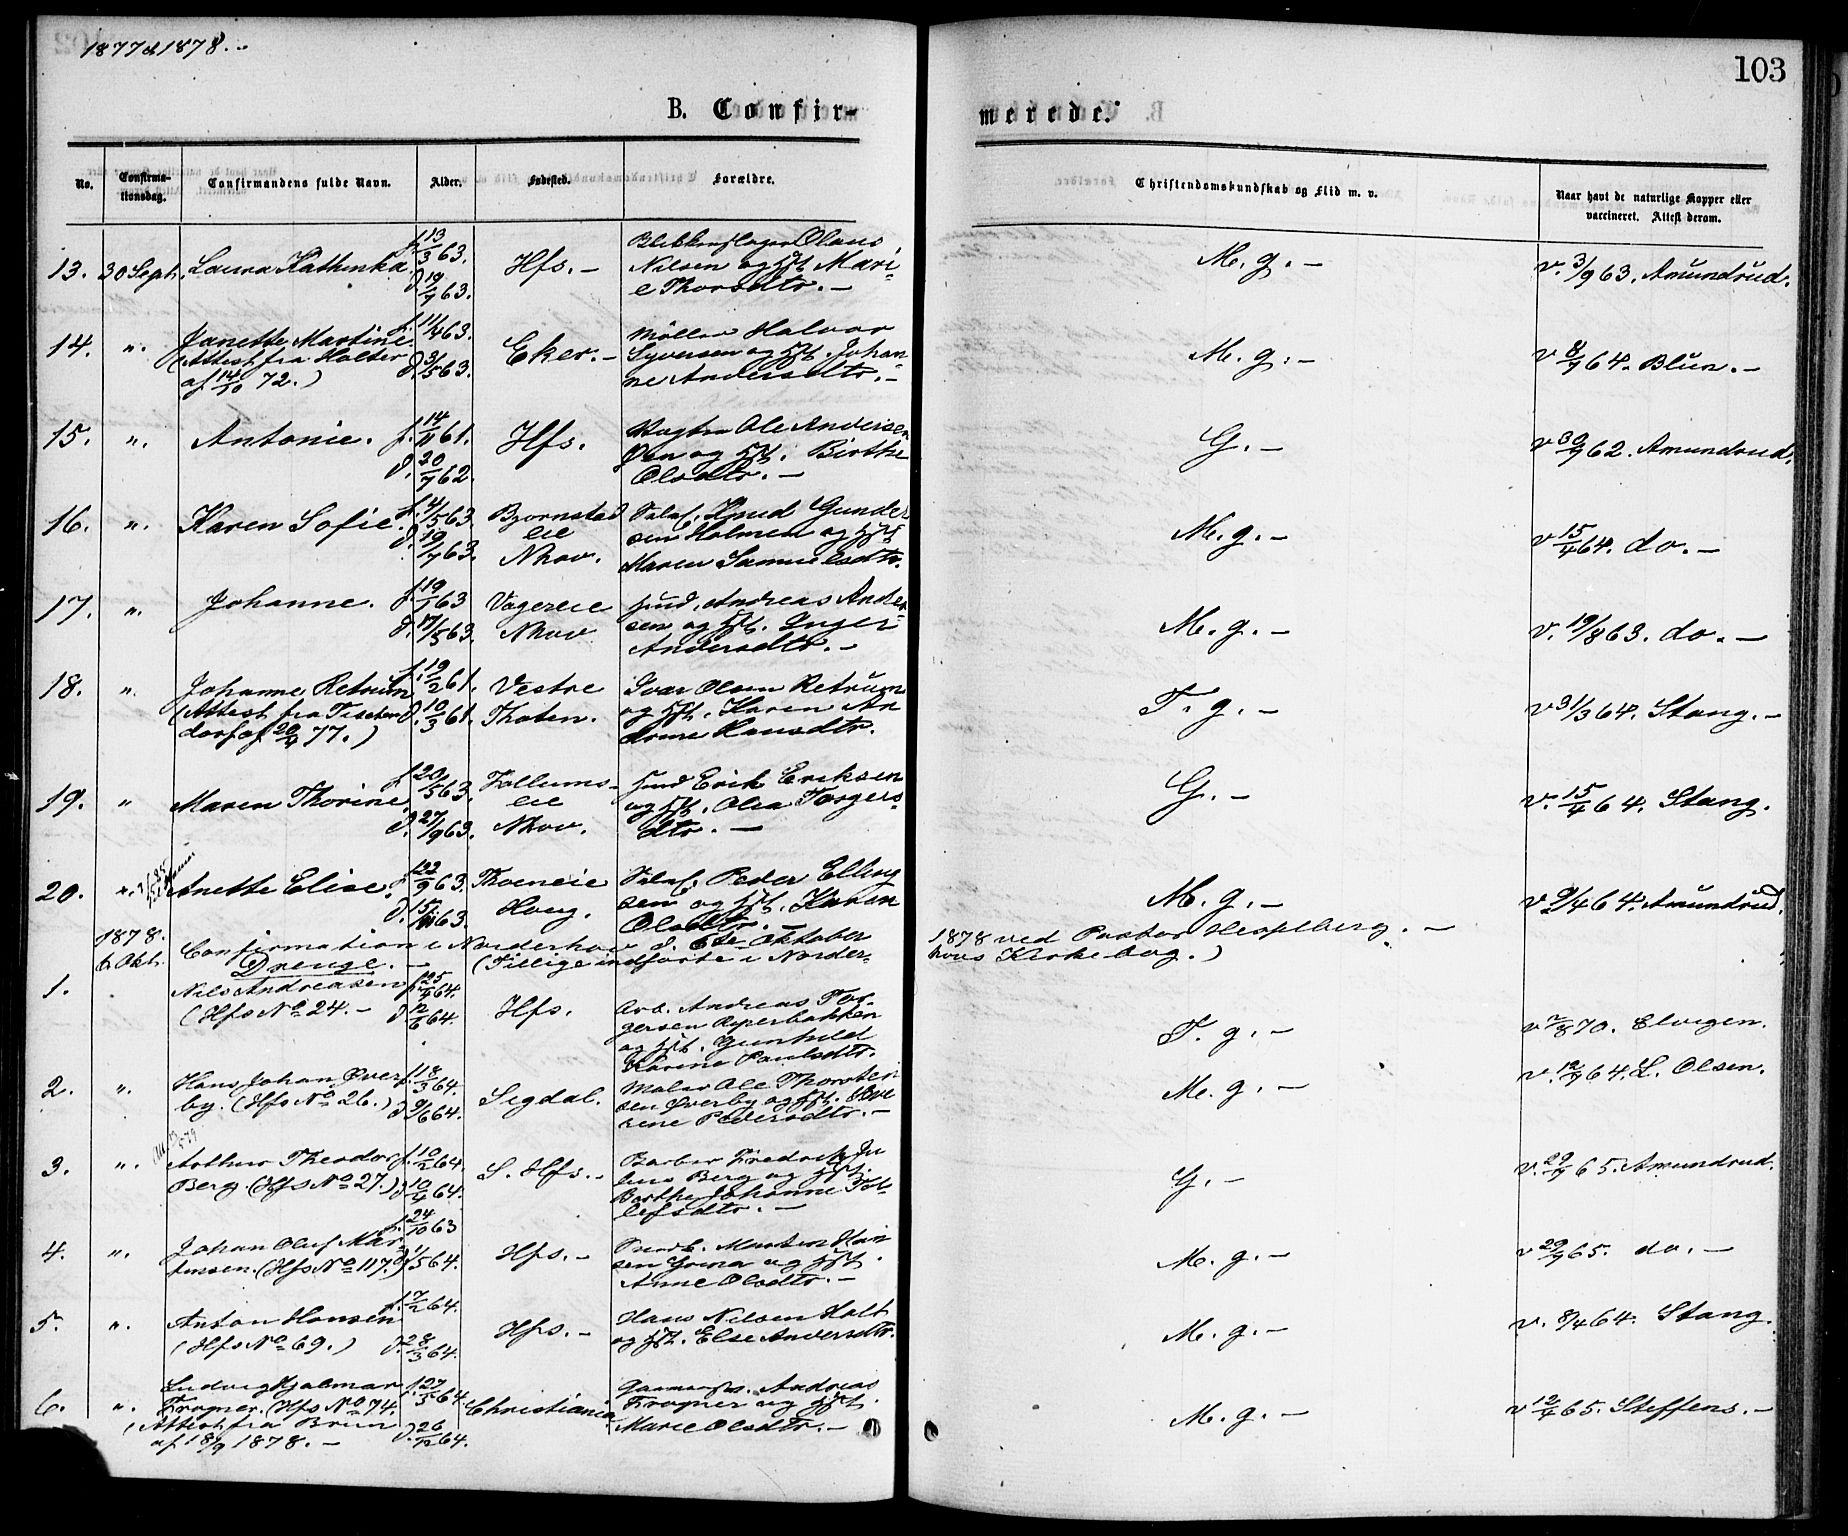 1877 & 1878.
103
B. Confir-
merede.
No.
Confirma-
tionsdag.
Confirmandens fulde Navn.
Alder.
Fødested.
Forældre.
Christendomskundskab og Flid m. v.
Naar havt de naturlige Kopper eller
vaccineret. Attest derom.
13. 30 Sept. Laura Kathinka f. 13/3 63. d. 19/7 63. Hfs. –
Olaus
Nilsen og Hst. Mari-
e Thorsdtr. –
M. g. –
v. 3/9 63. Amundrud.
14. ". Janette Martine.
(Attest fra Holter
af 14/10 72.)
f. 11/4 63. d. 3/5 63. Eker. –
Møller Halvor
Syversen og Hst. Johan
ne Andersdtr. –
M. g. –
v 8/7 64. Blün. –
15. ". Antonie. f. 14/11 61. d. 20/7 62. Hfs.
Ole Andersen
og Hst. Birthe
Olsdtr. –
G. –
v 30/9 62. Amundrud.
16. ". Karen Sofie. f. 4/5 63. d. 19/7 63. Bjørnstad
eie
Nhov.
Knud Gunder
sen Holmen og Hst
Maren Samuelsdtr.
M. g. –
v 15/4 64. do. –
17. ". Johanne. f. 19/1 63 d. 17/5 63. Vagereie
Nhov
Huud. Andreas Ander
sen og Hst. Inger
Andersdtr. –
M. g. –
v. 19/8 63. do. –
18. ". Johanne Retrum
(Attest fra Tischen
dorf af 20/4 77.)
f. 19/2 61. d. 10/3 61. Vestre
Thoten.
Ivar Olsen Retrum
og Hst. Karen An
drine Hansdtr.
T. g. –
v 31/3 64. Stang. –
19. " Maren Thorine. f. 20/5 63. d. 27/9 63. Follums-
eie
Nhov.
Huud Erik Eriksen
og Hst. Olea Torgers-
dtr. –
G. –
v. 15/4 64. Stang.
20. ". Anette Elise. f. 22/9 63. d. 15/11 63. Thoeneie
Houg.
Peder Elling
sen og Hst. Karen
Olsdtr. –
M. g. –
v 9/4 64. Amundrud.
1878.
6 Okt. Confirmation i Norderhov d. 6te Oktober 1878 ved Pastor Hesselberg. –
Drenge. – (Tillige indførte i Norder-
hovs Kirkebog.)
1. Nils Andreasen
(Hfs No 24. –
f. 25/4 64. d. 12/6 64. Hfs.
Arb. Andreas Tor-
gersen Reperbakken
og Hst. Gunhild
Karine Paulsdtr.
T. g. –
v 2/8 70. Elvigen.
2. ". Hans Johan Øver
by. (Hfs No 26.)
f. 18/3 64. d. 9/6 64. Sigdal.
Maler Ole Thorsten
sen Øverby og Hst. Ove
rene Pedersdtr. –
M. g. –
v. 12/9 64. L. Olsen.
3. ". Arthur Theodor
Berg. (Hfs No 27.)
f. 10/2 64. d. 10/4 64. S. Hfs. –
Barber Fredrik Ju
lius Berg og Hst.
Berthe Johanne Tol-
lefsdtr. –
G. –
v. 29/9 65. Amundrud.
4. ". Johan Oluf Mar-
tinsen. (Hfs No 117.)
f. 24/10 63 d. 1/5 64. Hfs. –
Martin Han
sen og Hst.
Anne Olsdtr. –
M. g. –
v 29/9 65. do. –
5. ". Anton Hansen
(Hfs No 69.)
f. 17/2 64. d. 28/3 64. Hfs. –
Hans Nilsen Holt
og Hst. Else Andersdtr.
M. g. –
v. 8/4 64. Stang.
6. ". Ludvig Hjalmar
Frogner. (Hfs No 74.
(Attest fra Bruun
af 18/9 1878. –
f. 27/5 64. d. 26/12 64. Christiania
Andreas
Frogner og Hst.
Marie Olsdtr. –
M. g. –
v 12/4 65. Steffens. –